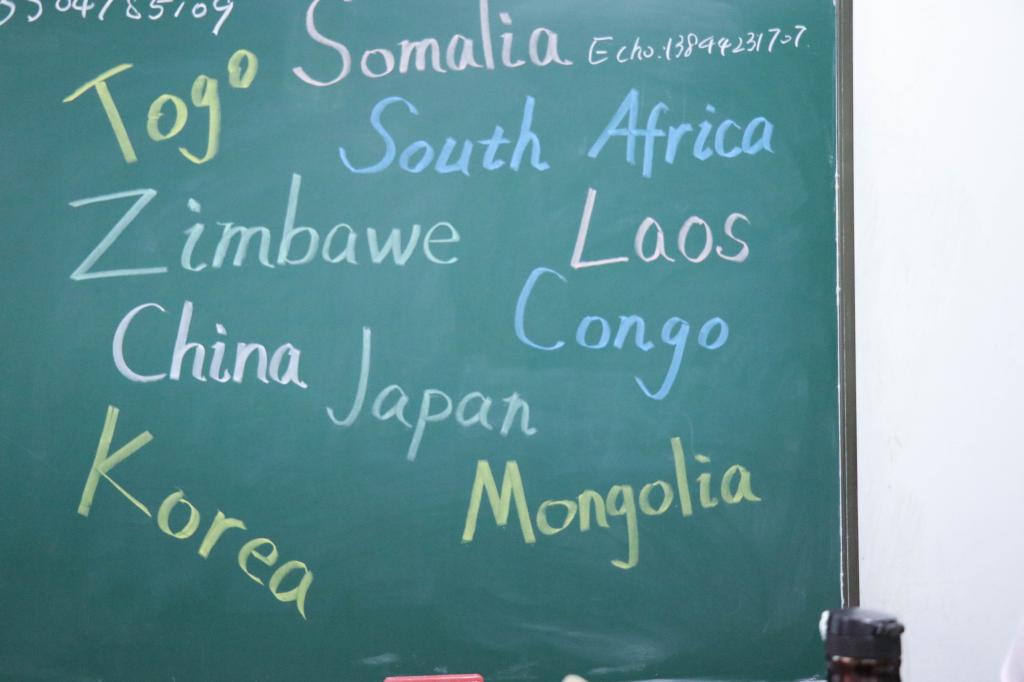 Somalia
Echo:13844231707
Togo
South Africa
Zimbawe
Laos
Congo
China
Japan
Korea
Mongolia